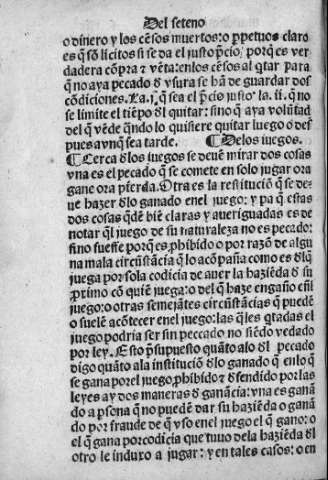 Del seteno
o dinero y los cẽsos muertos: o ꝑpetuos claro
es q̃ sõ licitos si se da el justo p̃cio, porq̃ es ver
dadera cõpra ⁊ vẽta: en los cẽsos al q̃tar para
q̃ no aya pecado õ vsura se hã de guardar dos
cõdiciones. La .i. q̃ sea el p̃cio justo. la .ii. q̃ no
se limite el tiẽpo õl quitar: sino q̃ aya volũtad
del q̃ vẽde q̃ndo lo quisiere quitar luego o des
pues avnq̃ sea tarde. ¶ Delos juegos.
¶ Cerca õlos juegos se deuẽ mirar dos cosas
vna es el pecado q̃ se comete en solo jugar ora
gane ora pierda. Otra es la restituciõ q̃ se de-
ue hazer õlo ganado enel juego: y pa q̃ estas
dos cosas q̃dẽ biẽ claras y aueriguadas es de
notar q̃l juego de su naturaleza no es pecado:
sino fuesse porq̃ es ꝓhibido o por razõ de algu
na mala circũstãcia q̃ lo acõpaña como es õlq̃
juega por sola codicia de auer la haziẽda õ su
ꝓximo cõ quiẽ juega: o del q̃ haze engaño enl
juego: o otras semejãtes circũstãcias q̃ puedẽ
o suelẽ acõtecer enel juego: las q̃les q̃tadas el
juego podria ser sin peccado no siẽdo vedado
por ley. Esto p̃supuesto quãto alo õl pecado
digo quãto ala instituciõ õlo ganado q̃ enlo q̃
se gana por el juego, ꝓhibido ⁊ õfendido por las
leyes ay dos maneras õ ganãcia: vna es ganã
do a ꝑsona q̃ no puedẽ dar su haziẽda o ganã
do por fraude de q̃ vso enel juego el q̃ gano: o
el q̃ gana por codicia que tuuo dela haziẽda õl
otro le induxo a jugar: y en tales casos: o en